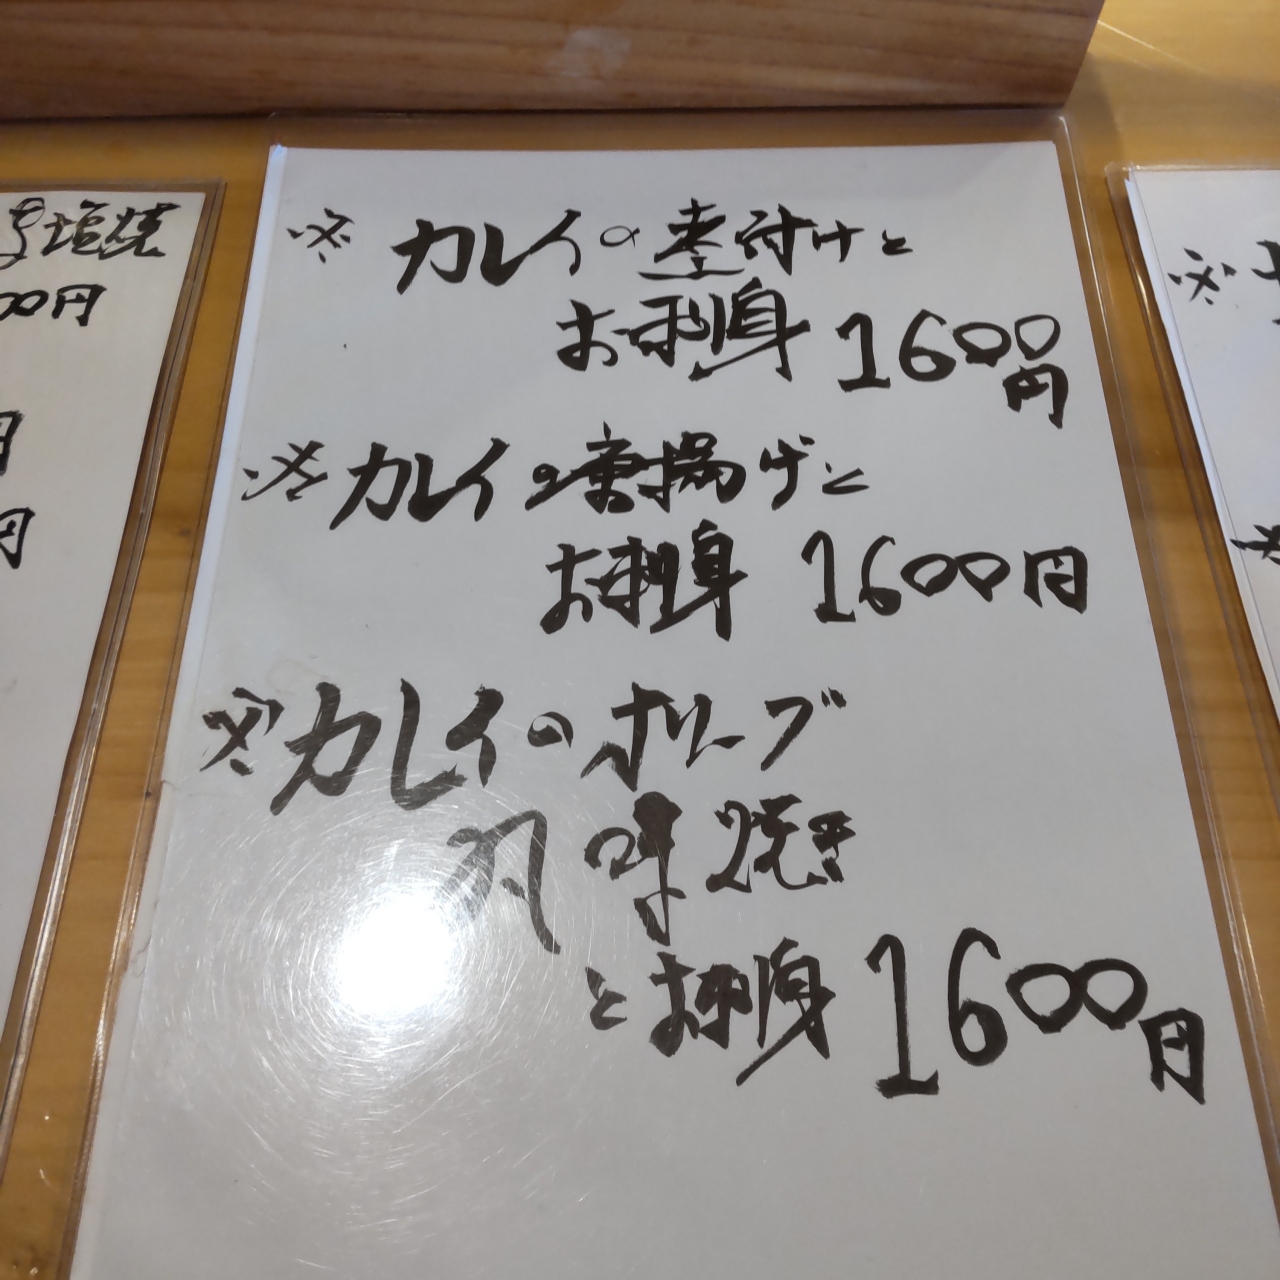 塩焼
00円
円
円
※カレイの煮付けと
お刺身 1600円
※カレイの唐揚げと
お刺身 1600円
※カレイのオリーブ
風味焼き
とお刺身 1600円
※